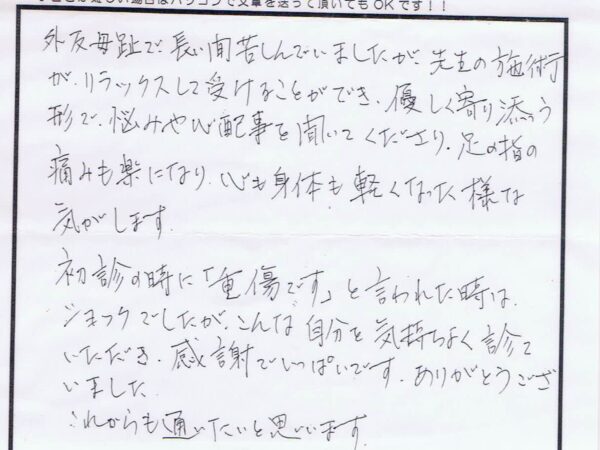 場合はパソコンで文章を送って頂いてもOKです！！
外反母趾で、長い間苦しんでいましたが、先生の施術
が、リラックスして受けることができ、優しく寄り添う
形で、悩みや心配事を聞いてくださり、足の指の
痛みも楽になり、心も身体も軽くなった様な
気がします。
初診の時に「重傷です」と言われた時は、
ショックでしたが、こんな自分を気持ちよく診て
いただき、感謝でいっぱいです。ありがとうござ
いました。
これからも通いたいと思います。